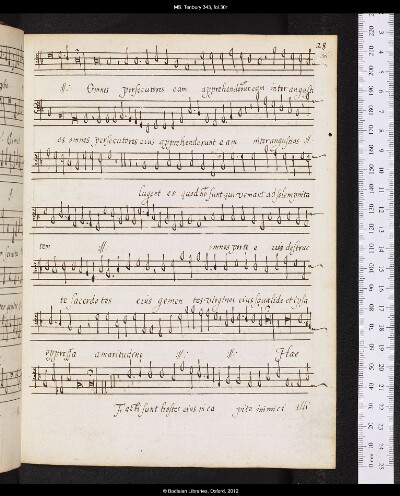 MS. Tenbury 343, fol.30r
28
Omnes persecutores eam apprehenderunt eam inter angusti
as omnes persecutores eius apprehenderunt eam inter angustias
lugent eo quod non sunt qui veniant ad solempnita
tem omnes porte eius destruc
te sacerdotes eius gemen tes virgines eius squalide et ipsa
oppressa amaritudine Hae
Facti sunt hostes eius in ca pite inimici illi
© Bodleian Libraries, Oxford, 2012